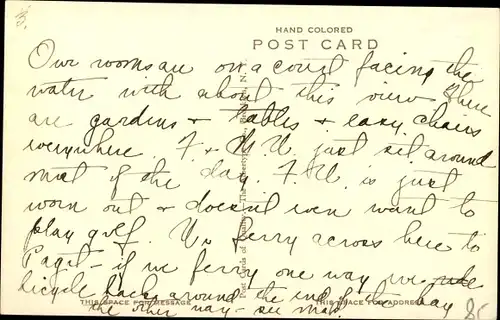 3.
HAND COLORED
POST CARD
Our rooms are on a court facing the
water with about this view. There
are gardens & tables & easy chairs
everywhere. F. & M. U. just sit around
most of the day. F. U. is just
worn out & doesn't even want to
play golf. We ferry across here to
Paget - if we ferry one way we ride
bicycle back around the end of the bay
the other way - see map
THIS SPACE FOR MESSAGE
THIS SPACE FOR ADDRESS